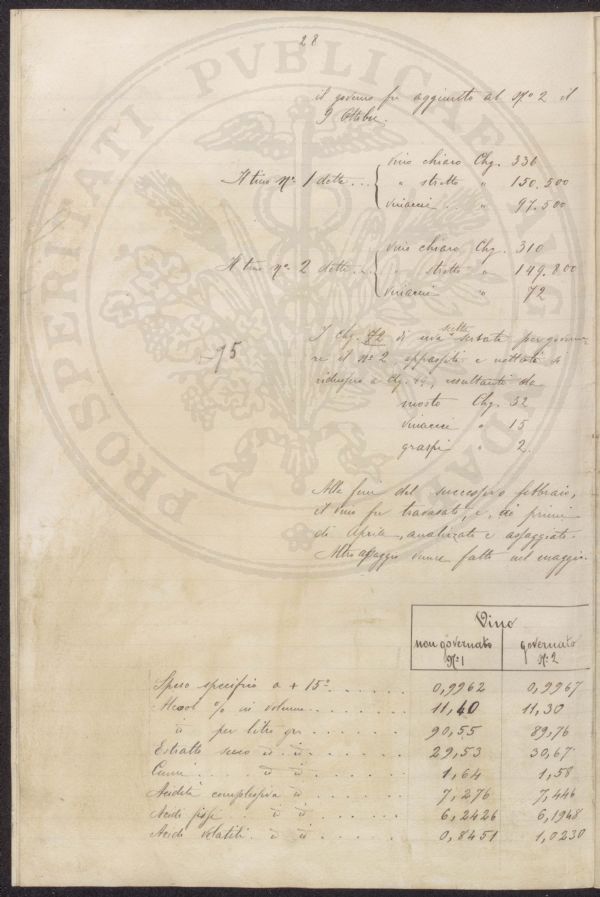 28
il governo fu aggiunto al Nº 2 il
9 Ottobre.
Il tino Nº 1 dette ... { vino chiaro Chg. 336
" stretto " 150.500
vinaccie .. " 97.500
Il tino Nº 2 dette ... { vino chiaro Chg. 310
" stretto " 149.800
vinaccie " 72
I Chg. 72 di uva scelta serbata per governa-
re il Nº 2, appassiti e nettati si
ridussero a Chg. resultanti da
75
mosto Chg. 32
vinaccie " 15
graspi " 2
Alla fine del successivo febbraio,
il vino fu travasato, e, ai primi
di Aprile, analizzato e assaggiato.
Altro assaggio venne fatto nel maggio.
Vino
non governato Nº 1 governato Nº 2
Speso specifico a + 15º ...... 0,9962 0,9967
Alcool % in volume ....... 11,40 11,30
id per litro gr. ....... 90,55 89,76
Estratto secco id. id. ...... 29,53 30,67
Ceneri .... id id ...... 1,64 1,58
Acidità complessiva id ...... 7,276 7,446
Acidi fissi .. id id ...... 6,2426 6,1948
Acidi volatili . id id ...... 0,8451 1,0230
PROSPERITATI PVBLICAE AVGENDAE